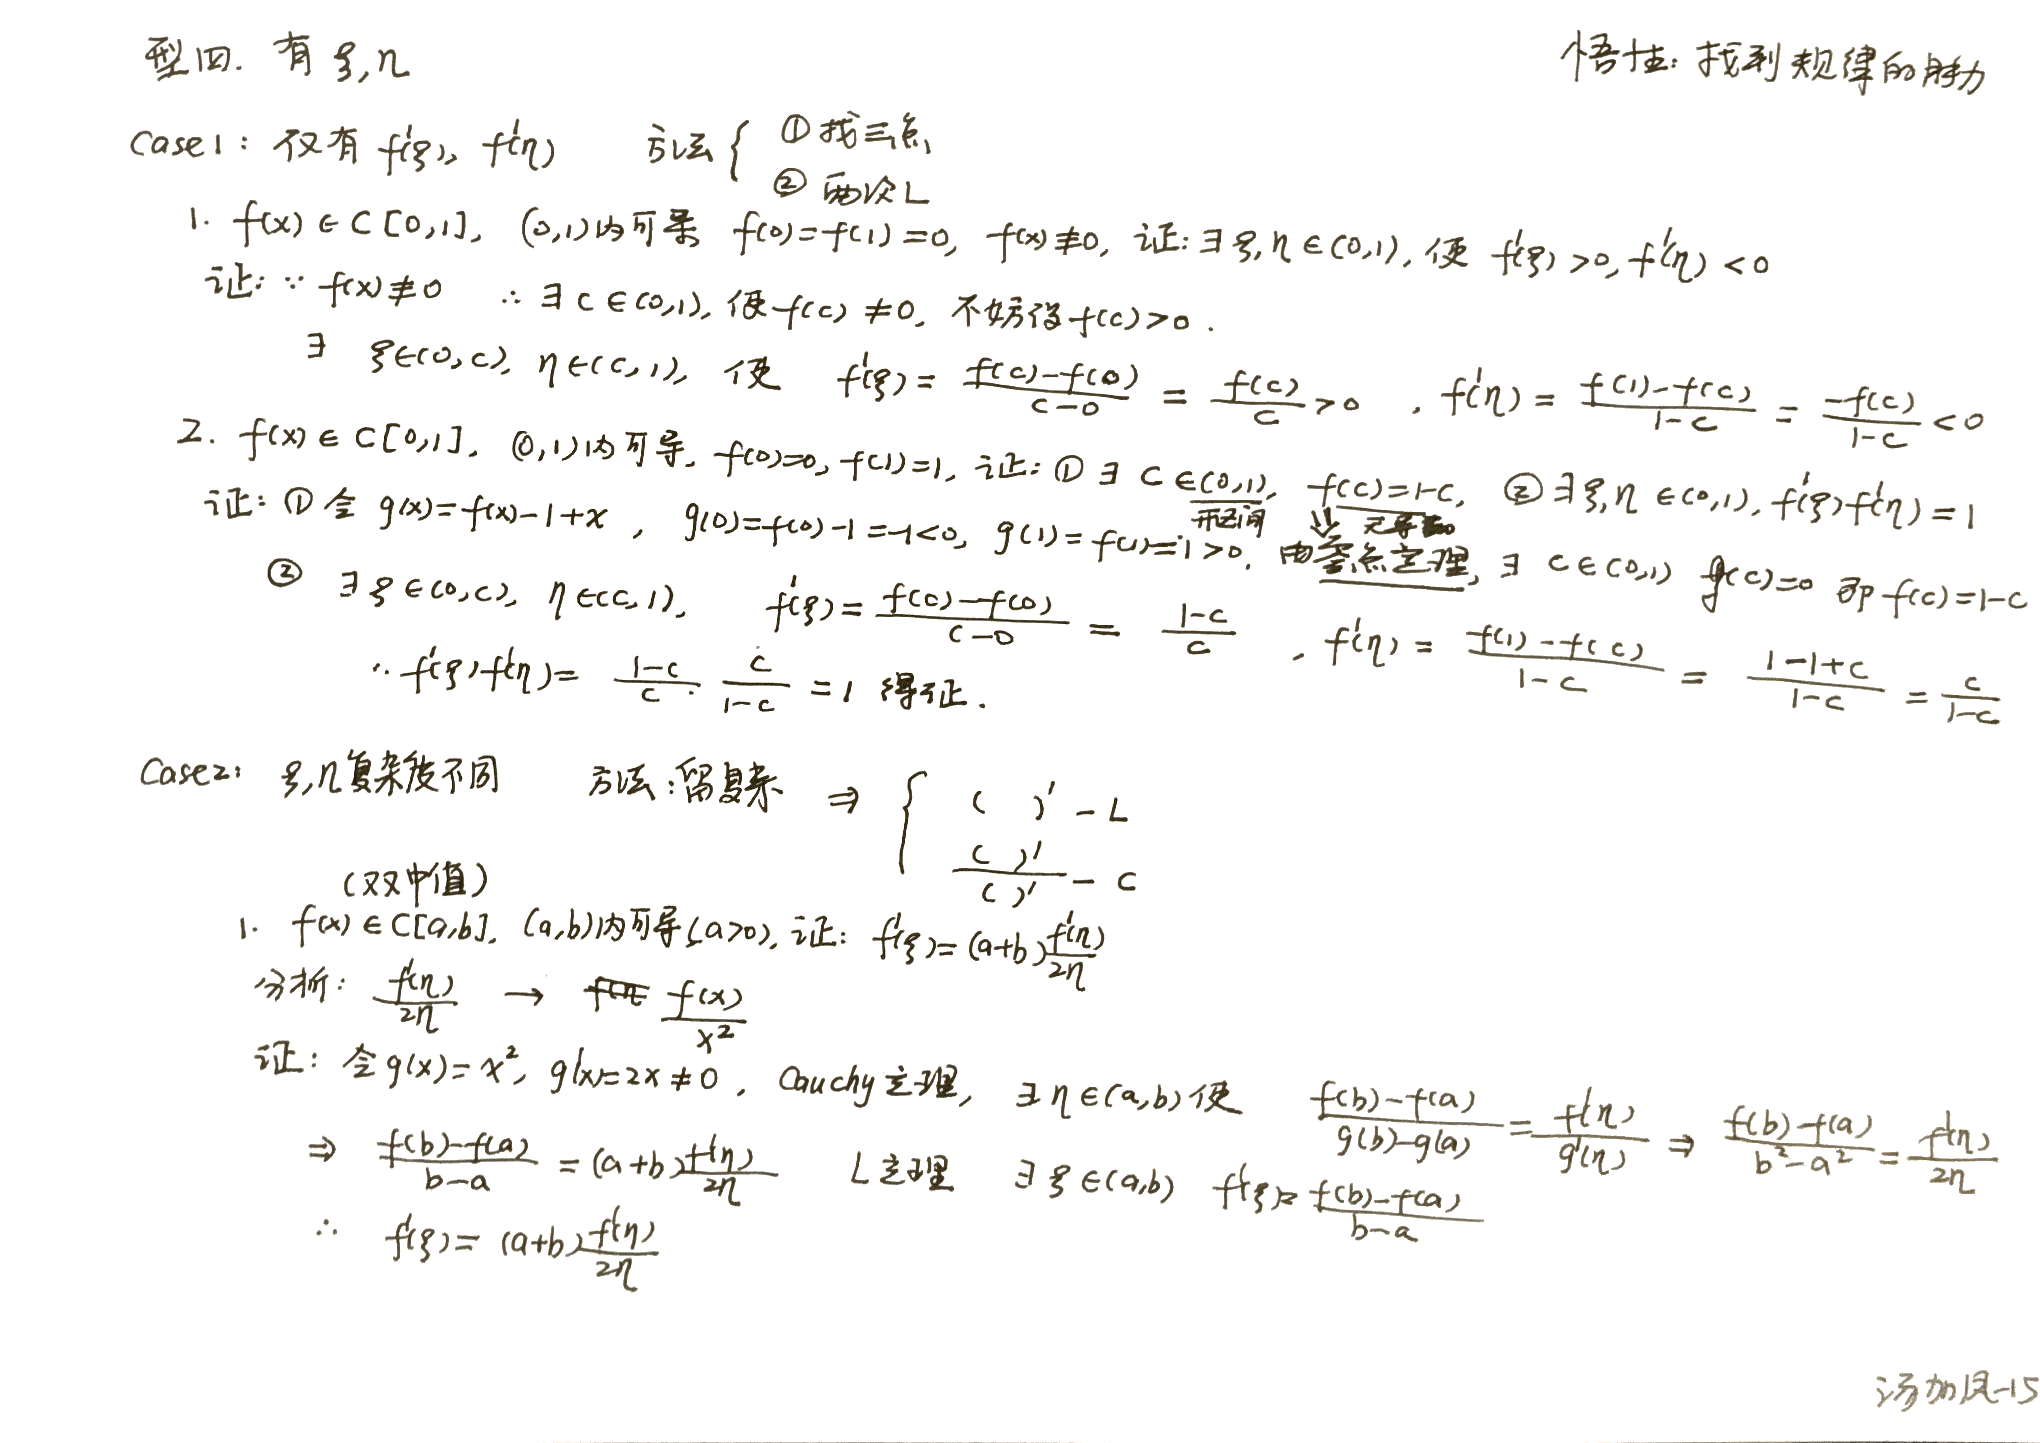 型四. 有 ξ,η
悟性: 找到规律的能力
Case1: 仅有 f'(ξ), f'(η) 方法 { ①找三点
② 两次L
1. f(x)∈C[0,1], (0,1)内可导 f(0)=f(1)=0, f(x)≢0, 证:∃ξ,η∈(0,1),使 f'(ξ)>0, f'(η)<0
证: ∵ f(x)≢0 ∴ ∃c∈(0,1), 使f(c)≠0, 不妨设f(c)>0.
∃ ξ∈(0,c), η∈(c,1), 使 f'(ξ)= \frac{f(c)-f(0)}{c-0} = \frac{f(c)}{c}>0 , f'(η)= \frac{f(1)-f(c)}{1-c} = \frac{-f(c)}{1-c}<0
2. f(x)∈C[0,1], (0,1)内可导, f(0)=0, f(1)=1, 证: ①∃ c∈(0,1), f(c)=1-c, ②∃ξ,η∈(0,1), f'(ξ)f'(η)=1
开区间 无导数
证: ① 令 g(x)=f(x)-1+x , g(0)=f(0)-1=-1<0, g(1)=f(1)=1>0. 由零点定理, ∃ c∈(0,1) g(c)=0 即f(c)=1-c
② ∃ξ∈(0,c), η∈(c,1), f'(ξ)= \frac{f(c)-f(0)}{c-0} = \frac{1-c}{c} , f'(η)= \frac{f(1)-f(c)}{1-c} = \frac{1-1+c}{1-c} = \frac{c}{1-c}
∴ f'(ξ)f'(η)= \frac{1-c}{c} · \frac{c}{1-c} =1 得证.
Case2: ξ,η复杂度不同 方法:留复杂 ⇒ { ( )' - L
\frac{( )'}{( )'} - C
(双中值)
1. f(x)∈C[a,b], (a,b)内可导(a>0), 证: f'(ξ)=(a+b)\frac{f'(η)}{2η}
分析: \frac{f'(η)}{2η} → \frac{f(x)}{x²}
证: 令g(x)=x², g'(x)=2x≠0 , Cauchy定理, ∃η∈(a,b)使 \frac{f(b)-f(a)}{g(b)-g(a)} = \frac{f'(η)}{g'(η)} ⇒ \frac{f(b)-f(a)}{b²-a²} = \frac{f'(η)}{2η}
⇒ \frac{f(b)-f(a)}{b-a} =(a+b)\frac{f'(η)}{2η} L定理 ∃ξ∈(a,b) f'(ξ)= \frac{f(b)-f(a)}{b-a}
∴ f'(ξ)= (a+b)\frac{f'(η)}{2η}
汤加凤-15